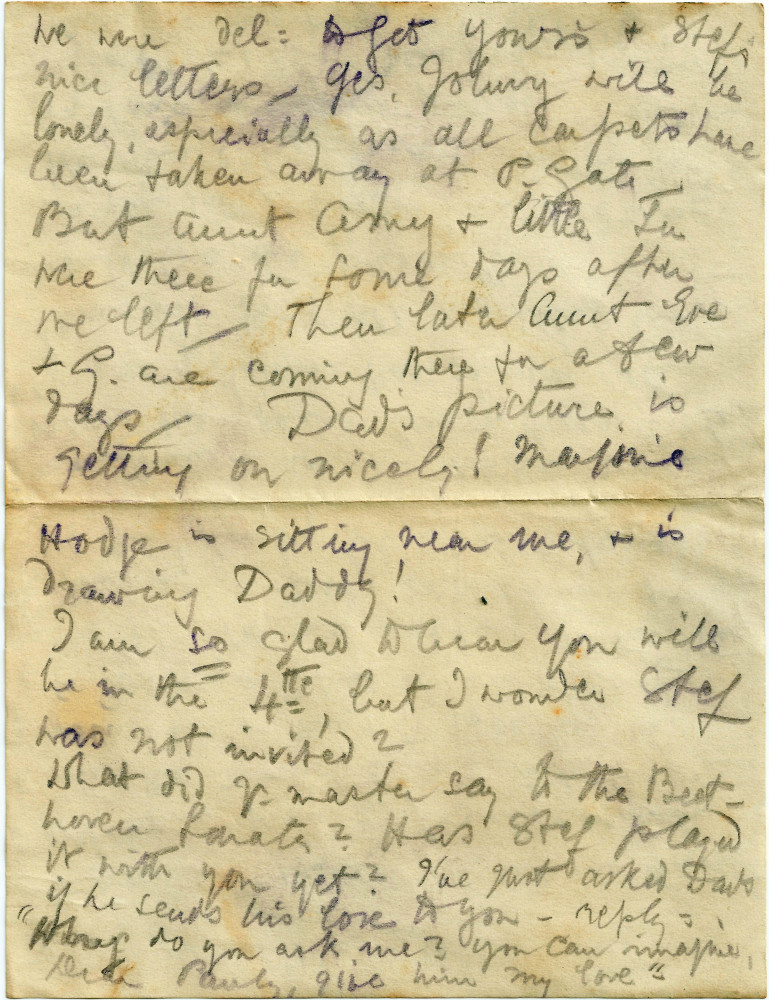 we were del= to get yours & Stef's
nice letters - Yes, Johnny will be
lonely, especially as all carpets have
been taken away at P. Gate
But Aunt Amy & little
were there for some days after
we left - Then later Aunt Eve
& G. are coming there for a few
days - Dad's picture is
getting on nicely! Marjorie
Hodge is sitting near me, & is
drawing Daddy!
I am so glad to hear you will
be in the 4th, but I wonder Stef
was not invited?
What did yr master say to the Beet-
hoven Sonata? Has Stef played
it with you yet? I've just asked Dads
if he sends his love to you - reply =
"Always do you ask me? you can imagine,
Dear Pauly, give him my love"